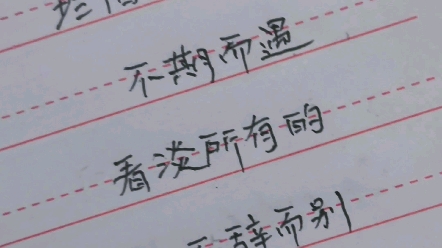 不期而遇
看淡所有的
不辞而别